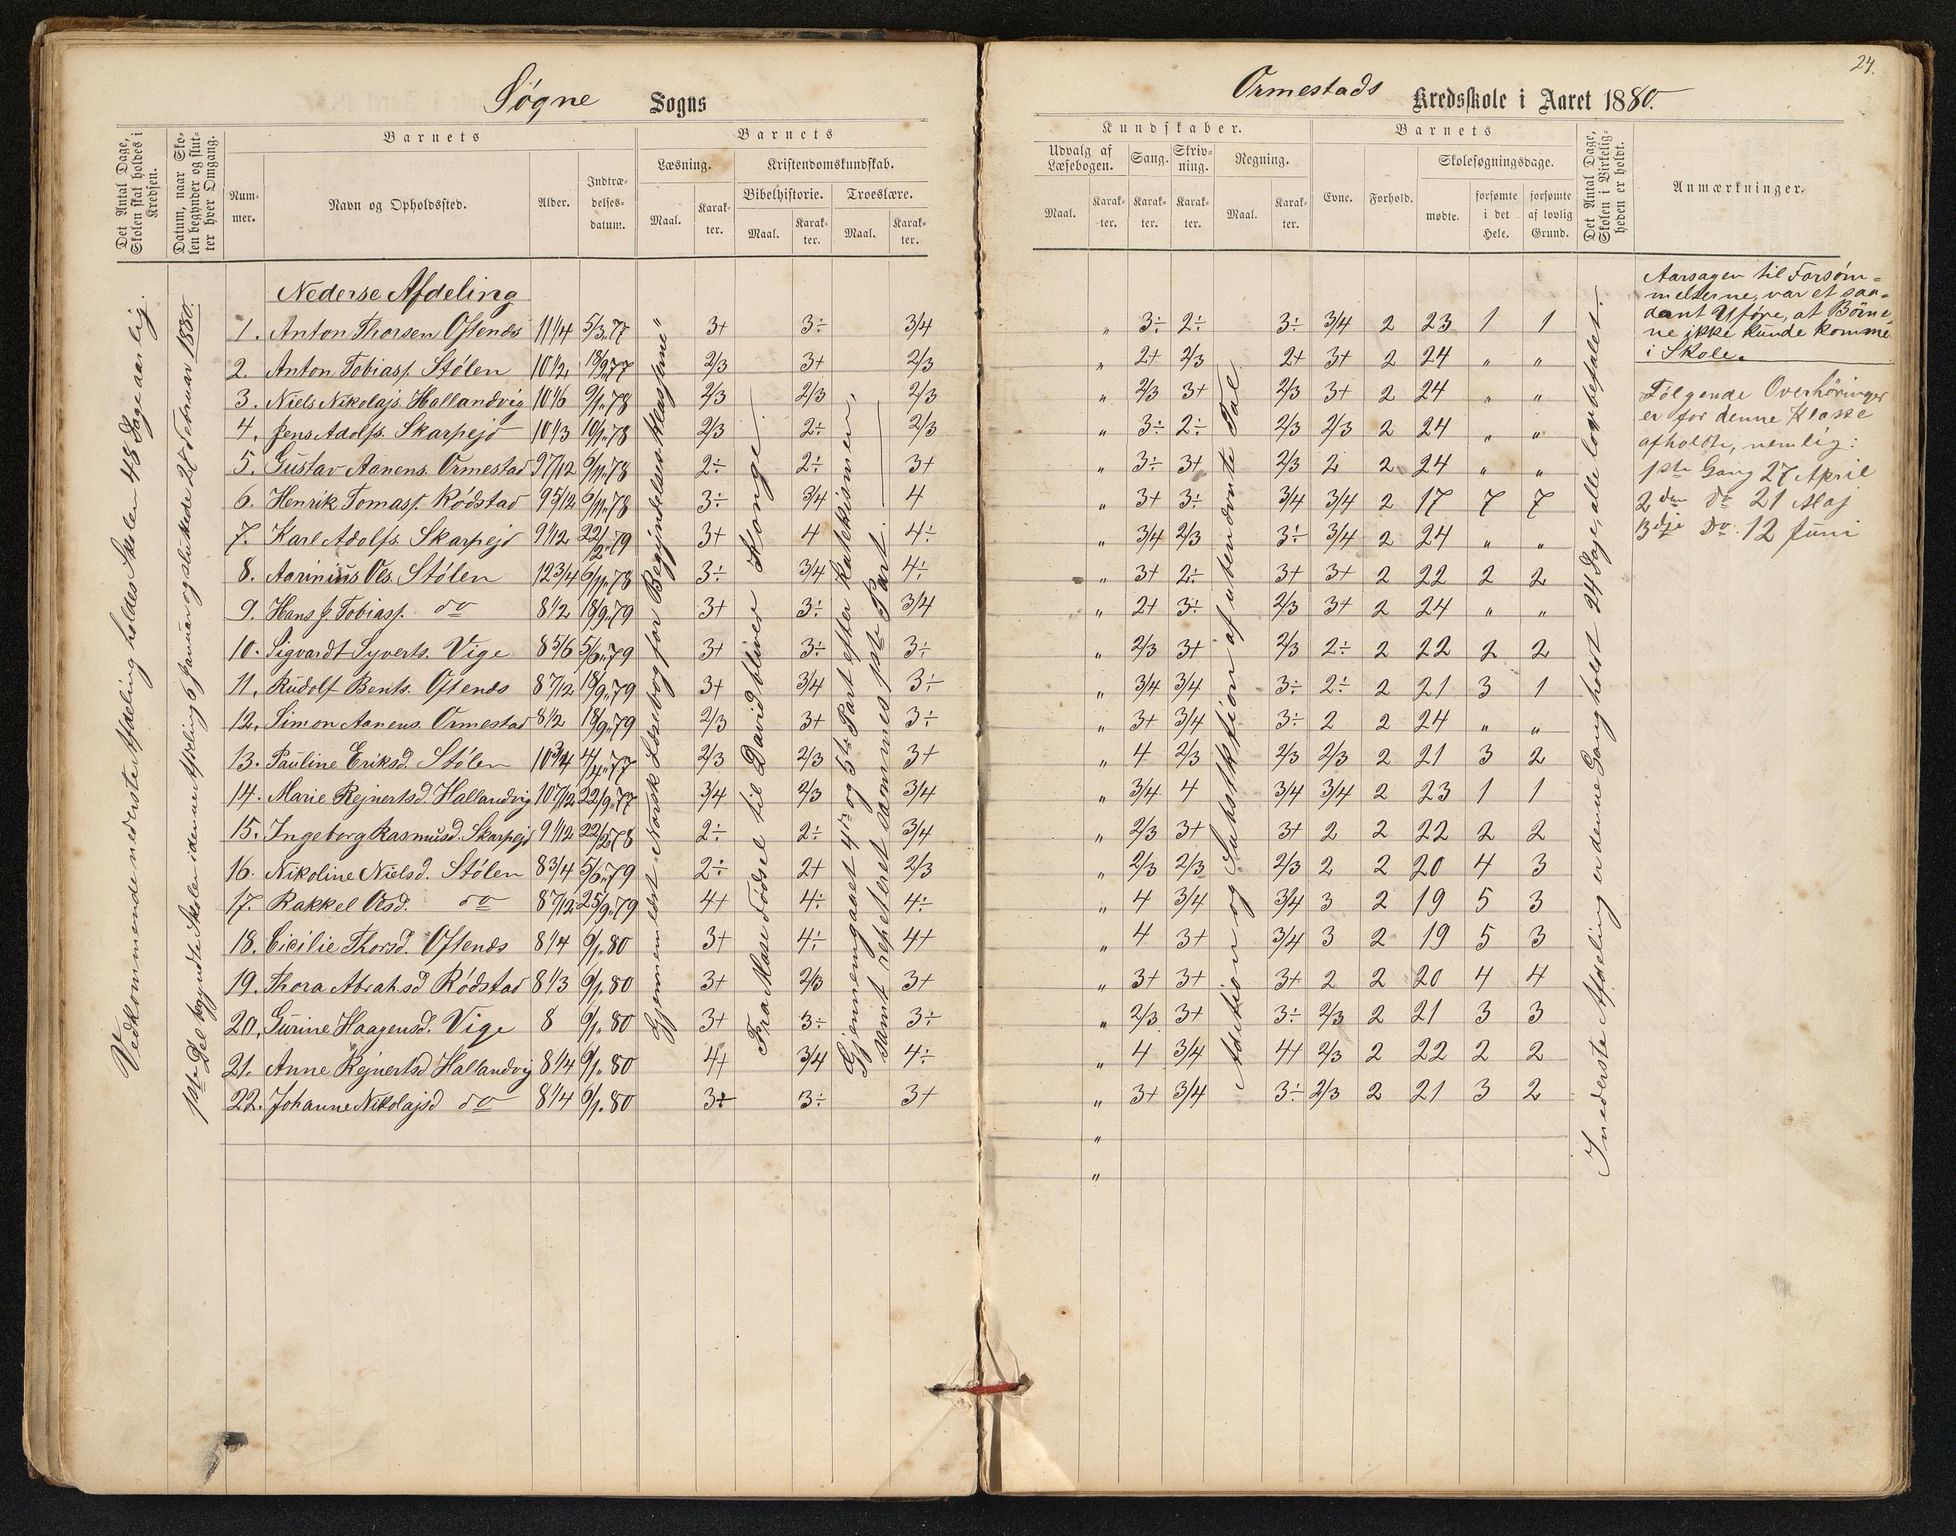 Søgne Sogns
Det Antal Dage, Skolen skal holdes i Kredsen.
Datum, naar Skolen begynder og slutter hver Omgang.
Barnets
Nummer.
Navn og Opholdssted.
Alder.
Indtrædelsesdatum.
Barnets
Læsning.
Kristendomskundskab.
Bibelhistorie.
Troeslære.
Maal.
Karakter.
Maal.
Karakter.
Maal.
Karakter.
Vedkommende nederste Afdeling holdes Skolen 48 Dage aarlig.
1ste Del begyndte Skolen i denne Afdeling 6 Januar og sluttede 27 Februar 1880.
Nederse Afdeling
1. Anton Thorsen Oftenæs 11 1/4 5/3.77 3+ 3÷ 3/4
2. Anton Tobiass. Stølen 10 1/2 18/9.77 2/3 3+ 2/3
3. Niels Nikolajs. Hallandvig 10 1/6 9/1.78 2/3 2/3 2/3
4. Jens Adolfs. Skarpejd 10 1/3 10/1.78 2/3 2÷ 2/3
5. Gustav Aanens. Ormestad 9 7/12 6/11.78 2÷ 2÷ 3+
6. Henrik Tomass. Rødstad 9 5/12 6/11.78 3÷ 3/4 4
7. Karl Adolfs. Skarpejd 9 1/12 22/2.79 3+ 4 4÷
8. Aarinius Ols. Stølen 12 3/4 6/11.78 3÷ 3/4 4÷
9. Hans J. Tobiass. do 8 1/2 18/9.79 3+ 3÷ 3/4
10. Sigvardt Syverts. Vige 8 5/6 5/6.79 3+ 3÷ 3÷
11. Rudolf Bents. Oftenæs 8 7/12 18/9.79 3+ 3/4 3÷
12. Simon Aanens. Ormestad 8 1/2 18/9.79 2/3 3+ 3÷
13. Pauline Eriksd. Stølen 10 3/4 4/4.77 2/3 2/3 3+
14. Marie Rejnertsd. Hallandvig 10 7/12 22/9.77 3/4 2/3 3/4
15. Ingeborg Rasmusd. Skarpejd 9 1/12 22/2.78 2÷ 2÷ 3/4
16. Nikoline Nielsd. Stølen 8 3/4 5/6.79 2÷ 2+ 2/3
17. Rakkel Olsd. do 8 7/12 25/9.79 4+ 4÷ 4÷
18. Cicilie Thorsd. Oftenæs 8 1/4 9/1.80 3+ 4÷ 4+
19. Thora Abrahsd Rødstad 8 1/3 9/1.80 3+ 2/3 3+
20. Gurine Haagensd. Vige 8 9/1.80 3+ 3÷ 3÷
21. Anne Rejnertsd Hallandvig 8 1/4 9/1.80 4+ 3/4 4÷
22. Johanne Nikolajsd do 8 1/4 9/1.80 3÷ 3+
Gjennemlæst Norsk Læsebog for Begyndelsesklasserne"
Fra Mose Fødsel til David bliver Konge.
Gjennemgaaet 4de og 5te Part efter Katekismen,
samt repeteret sammes 1ste Part.
24.
Ormestads Kredsskole i Aaret 1880.
Kundskaber.
Udvalg af Læsebogen.
Sang.
Skrivning.
Regning.
Maal.
Karakter.
Karakter.
Karakter.
Maal.
Karakter.
Barnets
Evne.
Forhold.
Skolesøgningsdage.
mødte.
forsømte i det Hele.
forsømte af lovlig Grund.
Det Antal Dage, Skolen i Virkeligheden er holdt.
Anmærkninger.
" 3÷ 2÷ 3÷ 3/4 2 23 1 1
" 2+ 2/3 2+ 3+ 2 24 " "
" 2/3 3+ 2/3 3+ 2 24 " "
" 3÷ 2÷ 2/3 2/3 2 24 " "
" 3÷ 3+ 2/3 2 2 24 " "
" 3+ 3÷ 3/4 3/4 2 17 7 7
" 3/4 2/3 3÷ 3/4 2 24 " "
" 3+ 2÷ 3+ 3+ 2 22 2 2
" 2+ 3÷ 2/3 3+ 2 24 " "
" 2/3 3+ 2/3 2÷ 2 22 2 2
" 3/4 3/4 3÷ 2÷ 2 21 3 1
" 3+ 3/4 3÷ 2 2 24 " "
" 4 2/3 2/3 2/3 2 21 3 2
" 3/4 4 3/4 3/4 2 23 1 1
" 2/3 3+ 3+ 2 2 22 2 2
" 2/3 2/3 2/3 2 2 20 4 3
" 4 3/4 3/4 3 2 19 5 3
" 4 3+ 3/4 3 2 19 5 3
" 3+ 3+ 3+ 2 2 20 4 4
" 2/3 3+ 3÷ 2/3 2 21 3 3
" 4 3/4 4+ 2/3 2 22 2 2
" 3+ 3/4 3÷ 2/3 2 21 3 2
"
"
Addition og Subtraktion af ubenævnte Tal.
I nederste Afdeling er denne Gang holdt 24 Dage, alle lovbefalet.
Aarsagen til Forsøm=
melserne, var et saa=
dant Uføre, at Børne=
ne ikke kunde komme
i Skole.
Følgende Overhøringer
er for denne Klasse
afholdte, nemlig:
1ste Gang 27 April
2den do 21 Maj
3dje Do. 12 Juni